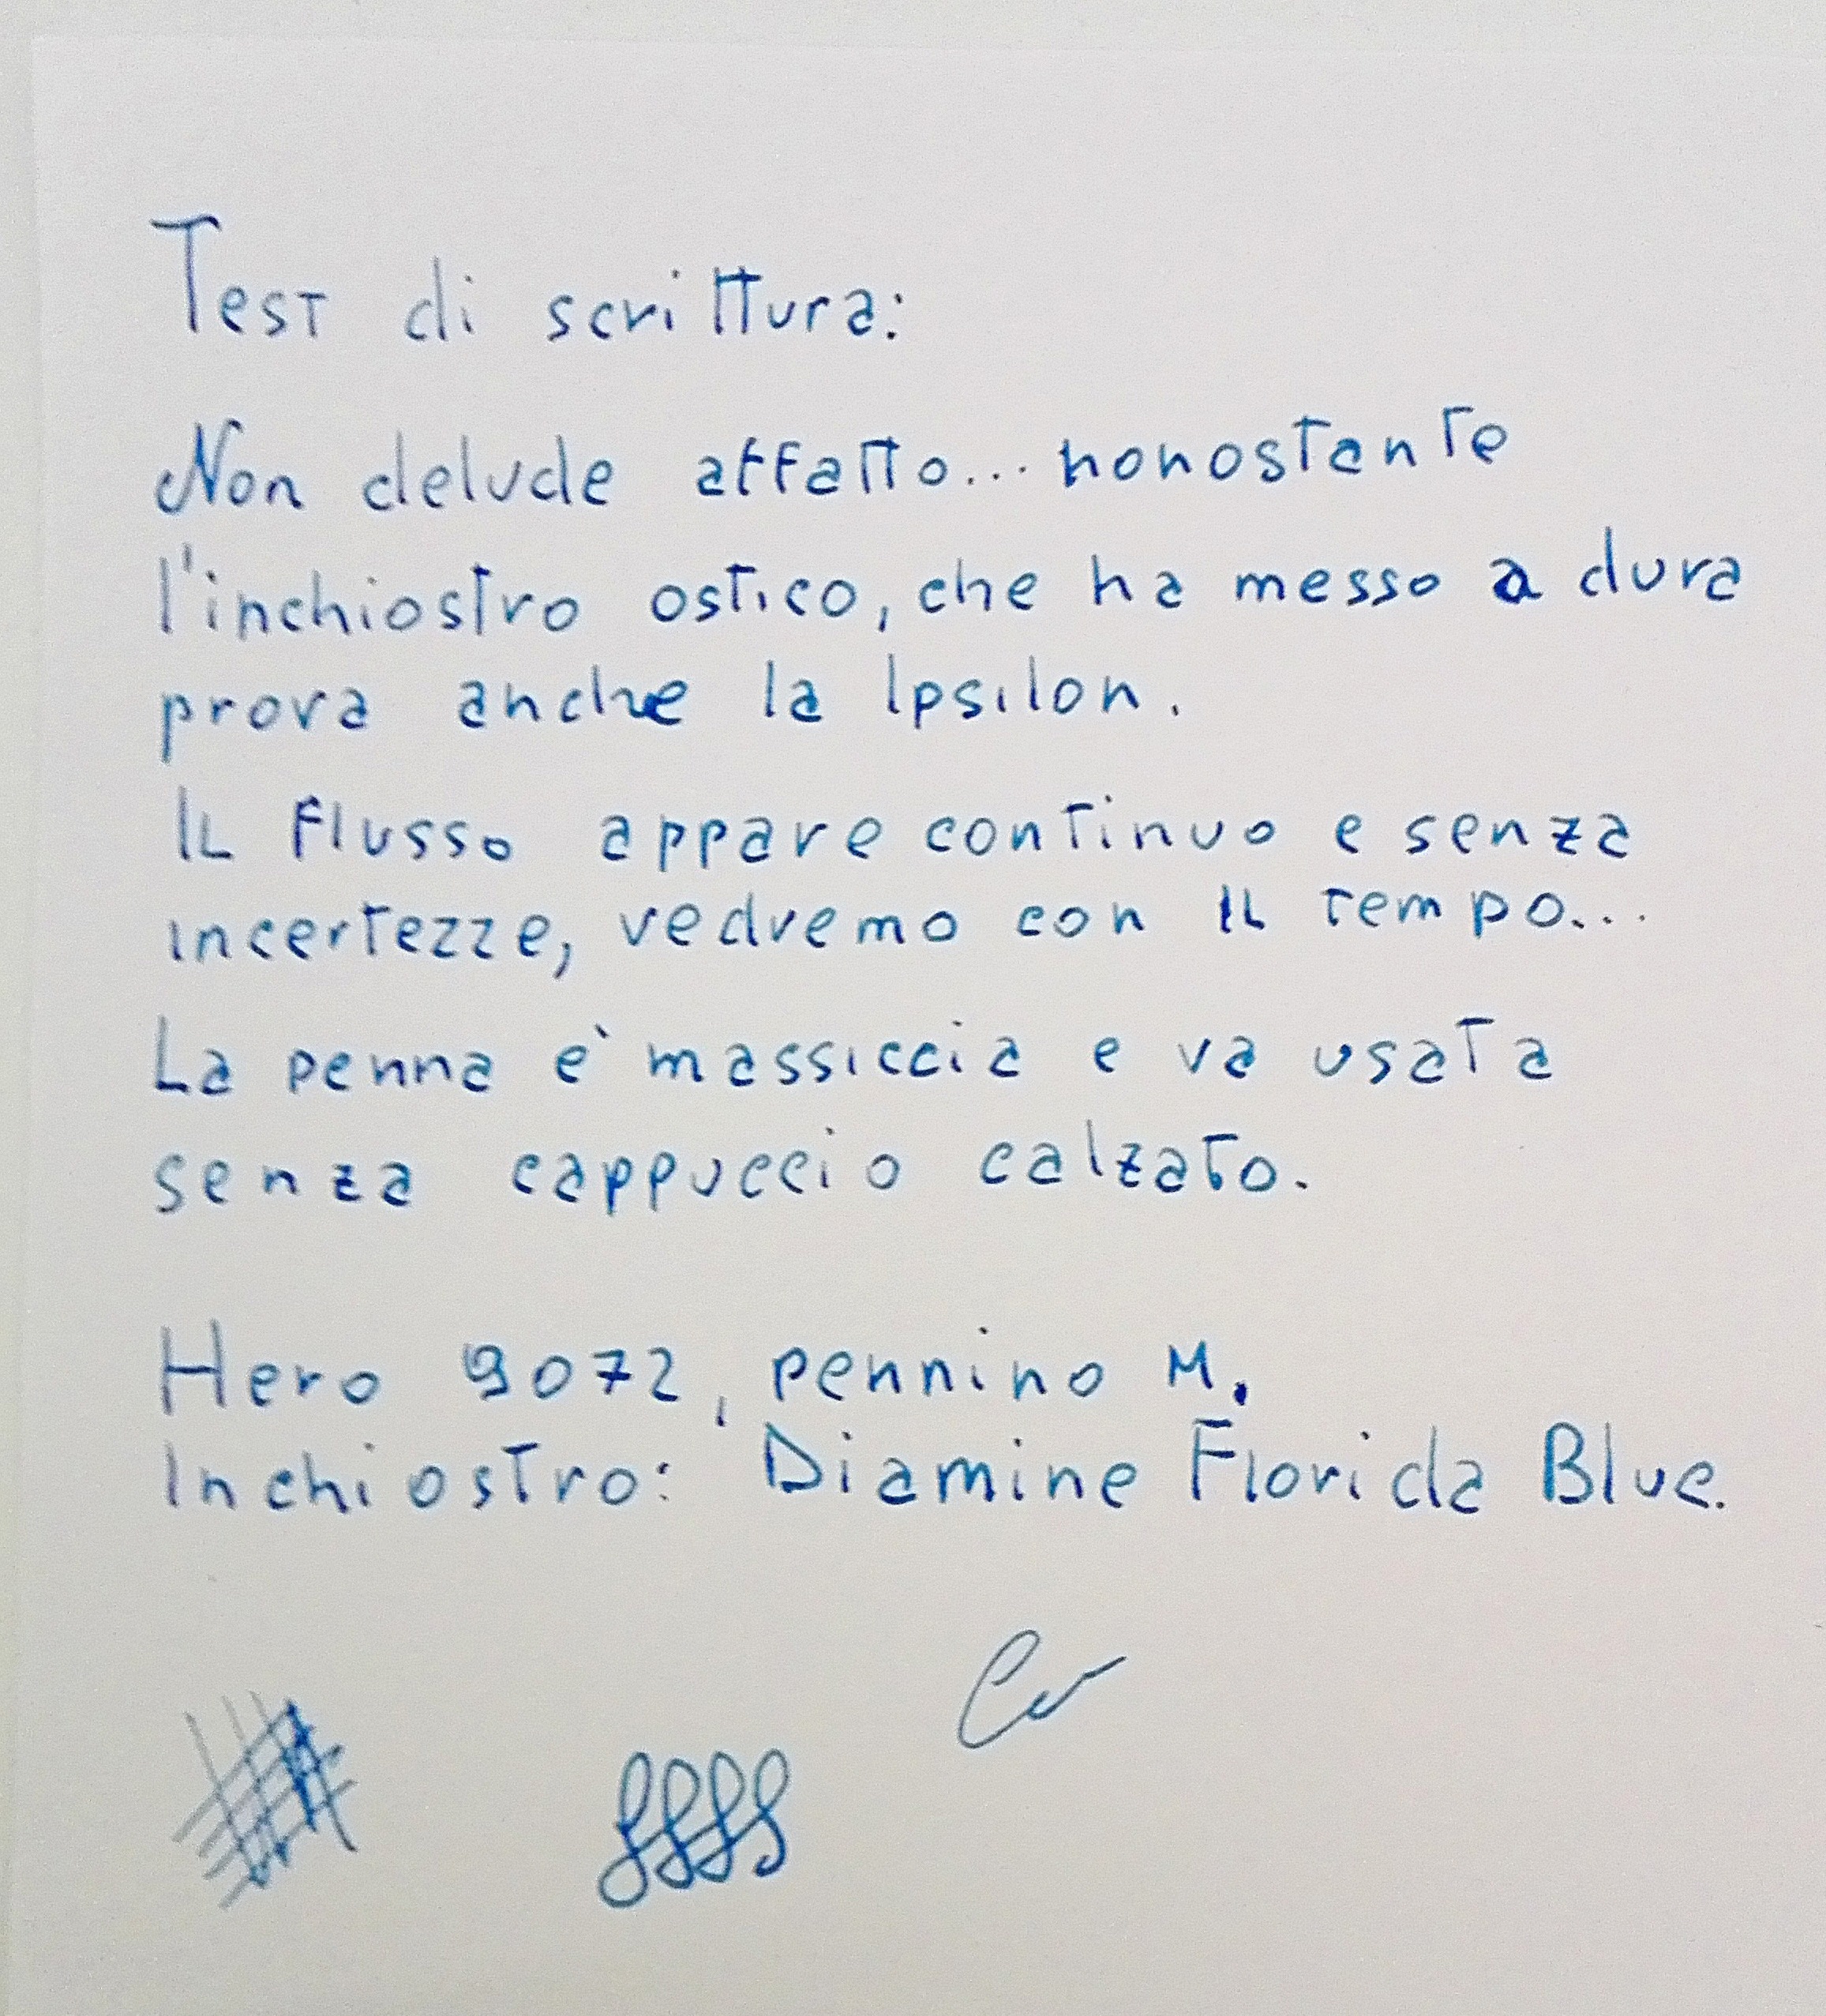 Test di scrittura:
Non delude affatto... nonostante
l'inchiostro ostico, che ha messo a dura
prova anche la Ipsilon.
Il flusso appare continuo e senza
incertezze, vedremo con il tempo...
La penna e' massiccia e va usata
senza cappuccio calzato.
Hero 9072, pennino M.
Inchiostro: Diamine Florida Blue.